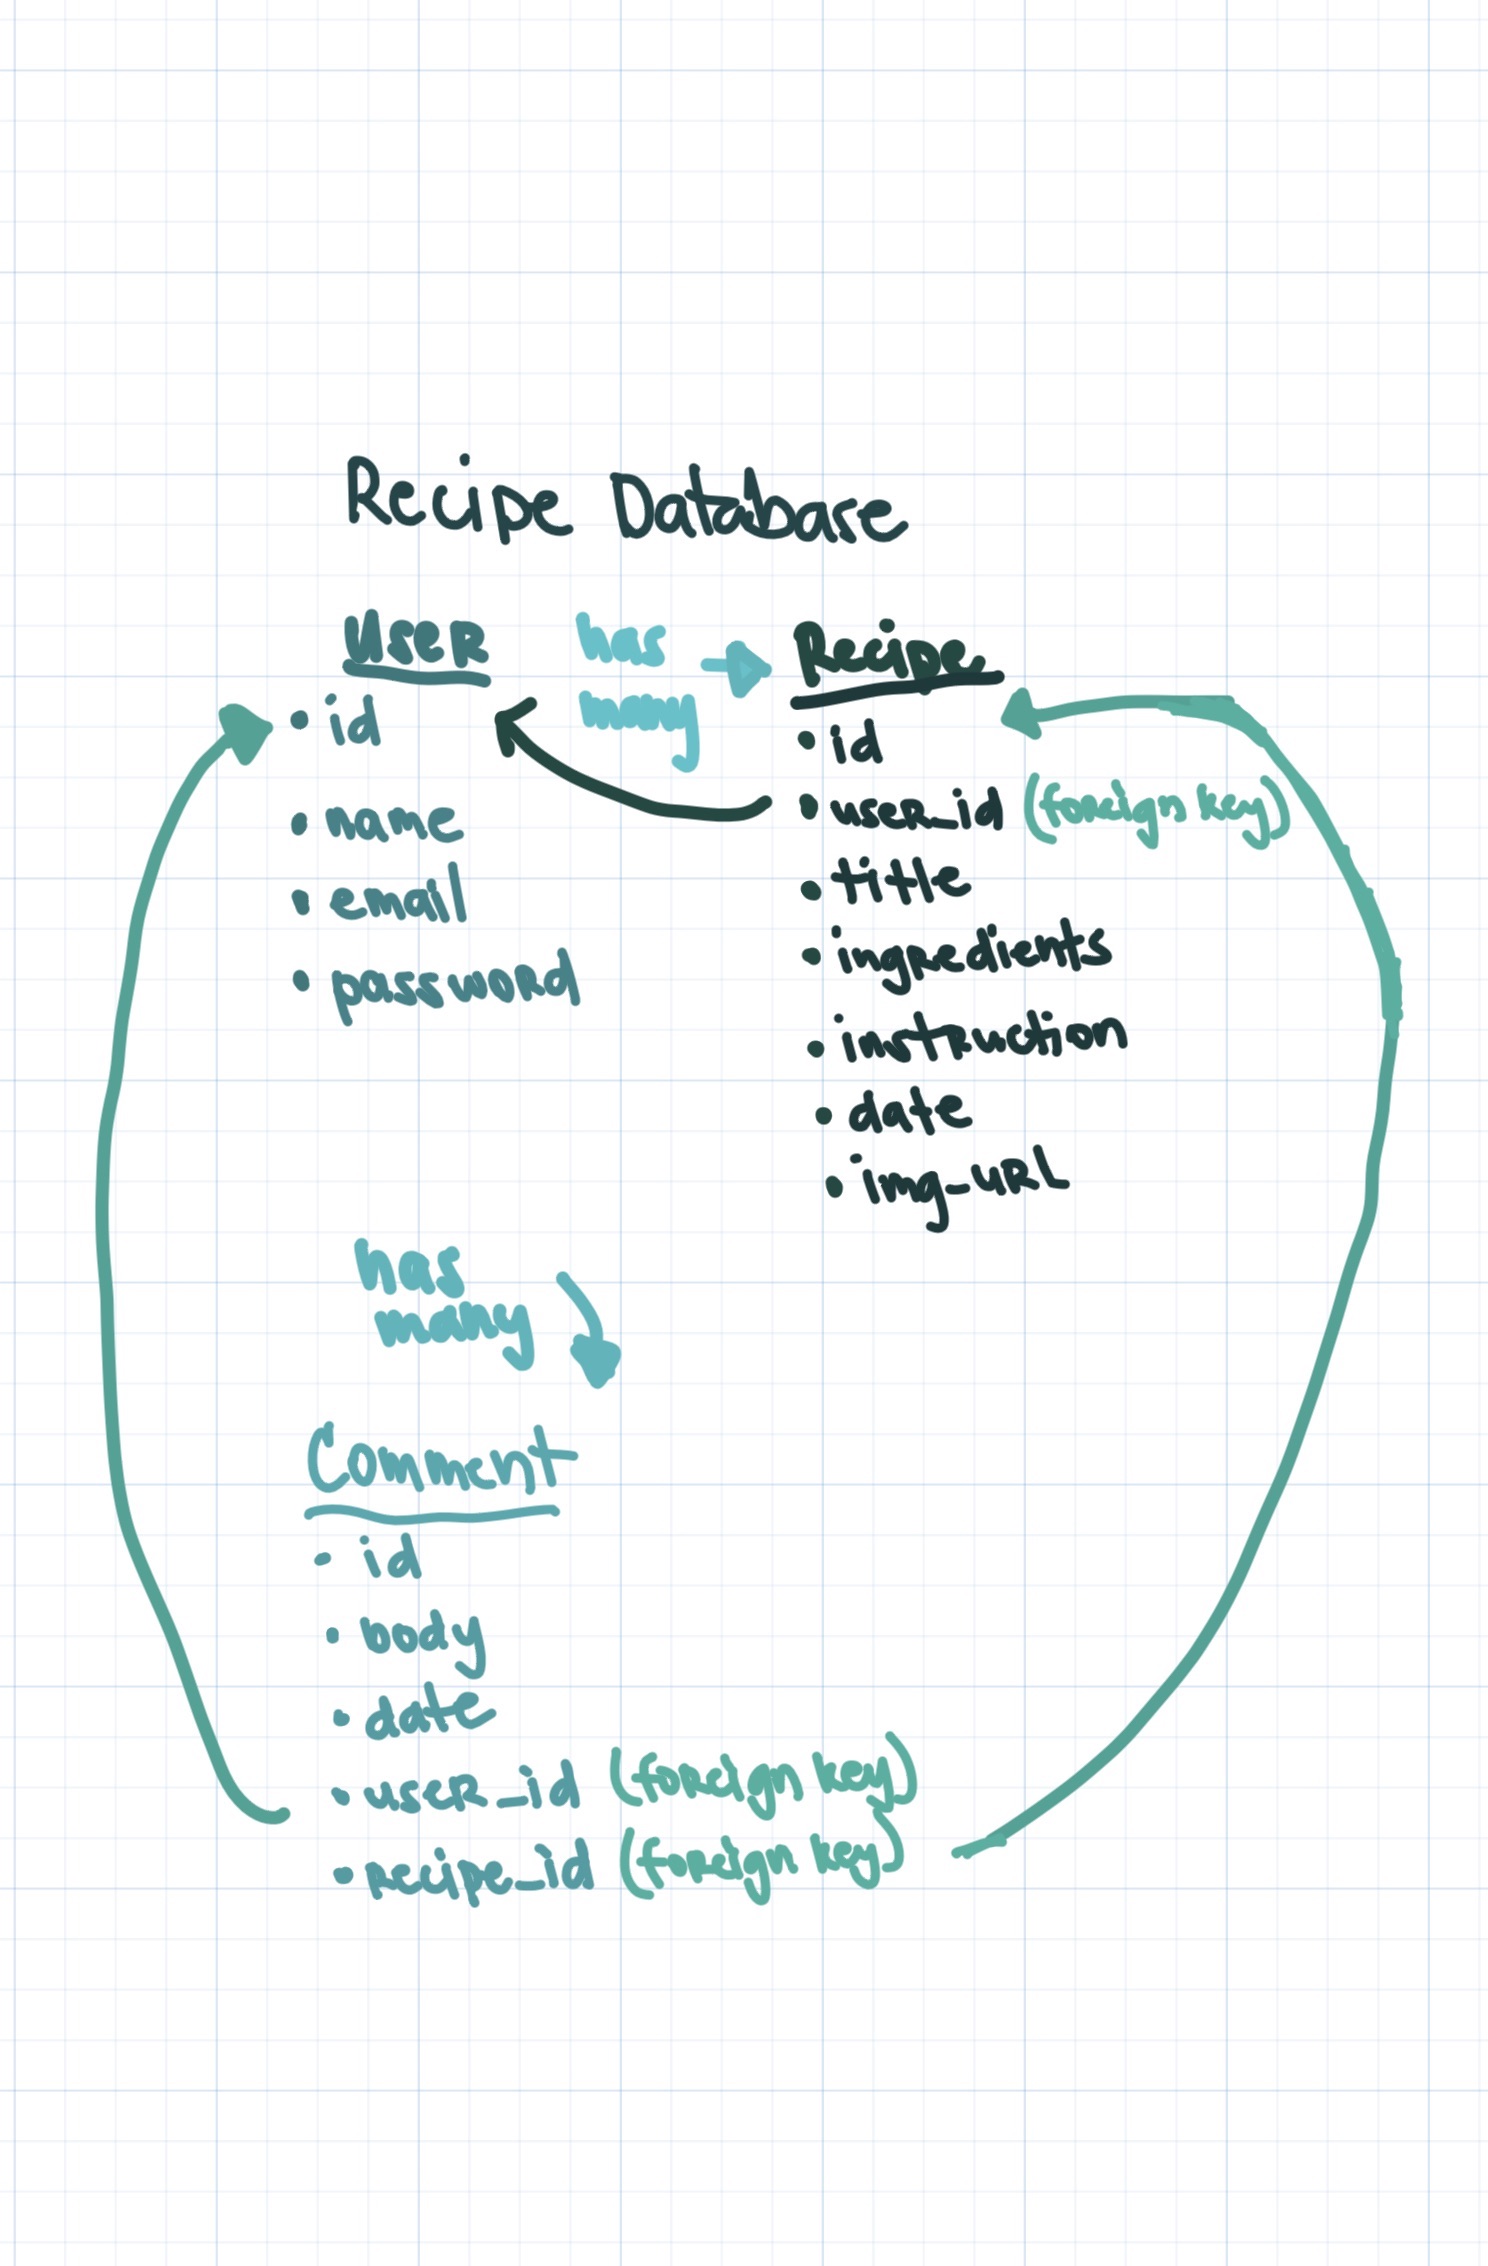 Recipe Database
User
• id
• name
• email
• password
has
many
Recipe
• id
• user_id (foreign key)
• title
• ingredients
• instruction
• date
• img_URL
has
many
Comment
• id
• body
• date
• user_id (foreign key)
• recipe_id (foreign key)